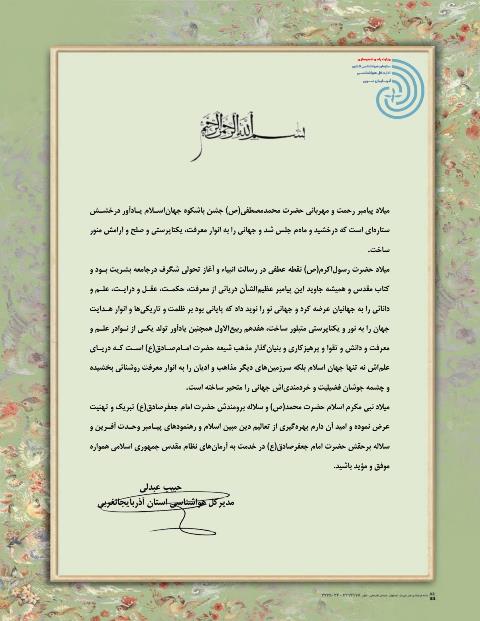 وزارت راه و شهرسازی
سازمان هواشناسی کشور
اداره کل هواشناسی
آذربایجان غربی
بسم الله الرحمن الرحیم
میلاد پیامبر رحمت و مهربانی حضرت محمدمصطفی(ص) جشن باشکوه جهان‌اسلام یادآور درخشش
ستاره‌ای است که درخشید و ماه‌م جلس شد و جهانی را به انوار معرفت، یکتاپرستی و صلح و ارامش منور
ساخت.
میلاد حضرت رسول‌اکرم(ص) نقطه عطفی در رسالت انبیاء و آغاز تحولی شگرف درجامعه بشریت بود و
کتاب مقدس و همیشه جاوید این پیامبر عظیم‌الشأن دریائی از معرفت، حکمت، عقل و درایت، علم و
دانائی را به جهانیان عرضه کرد و جهانی نو را نوید داد که پایانی بود بر ظلمت و تاریکی‌ها و انوار هدایت
جهان را به نور و یکتاپرستی متبلور ساخت، هفدهم ربیع‌الاول همچنین یادآور تولد یکی از نوادر علم و
معرفت و دانش و تقوا و پرهیزکاری و بنیان‌گذار مذهب شیعه حضرت امام‌صادق(ع) است که دریای
علم‌اش نه تنها جهان اسلام بلکه سرزمین‌های دیگر مذاهب و ادیان را به انوار معرفت روشنائی بخشیده
و چشمه جوشان فضیلیت و خردمندی‌اش جهانی را متحیر ساخته است.
میلاد نبی مکرم اسلام حضرت محمد(ص) و سلاله برومندش حضرت امام جعفرصادق(ع) تبریک و تهنیت
عرض نموده و امید آن دارم بهره‌گیری از تعالیم دین مبین اسلام و رهنمودهای پیامبر وحدت آفرین و
سلاله برحقش حضرت امام جعفرصادق(ع) در خدمت به آرمان‌های نظام مقدس جمهوری اسلامی همواره
موفق و مؤید باشید.
حبیب عبدلی
مدیرکل هواشناسی استان آذربایجانغربی